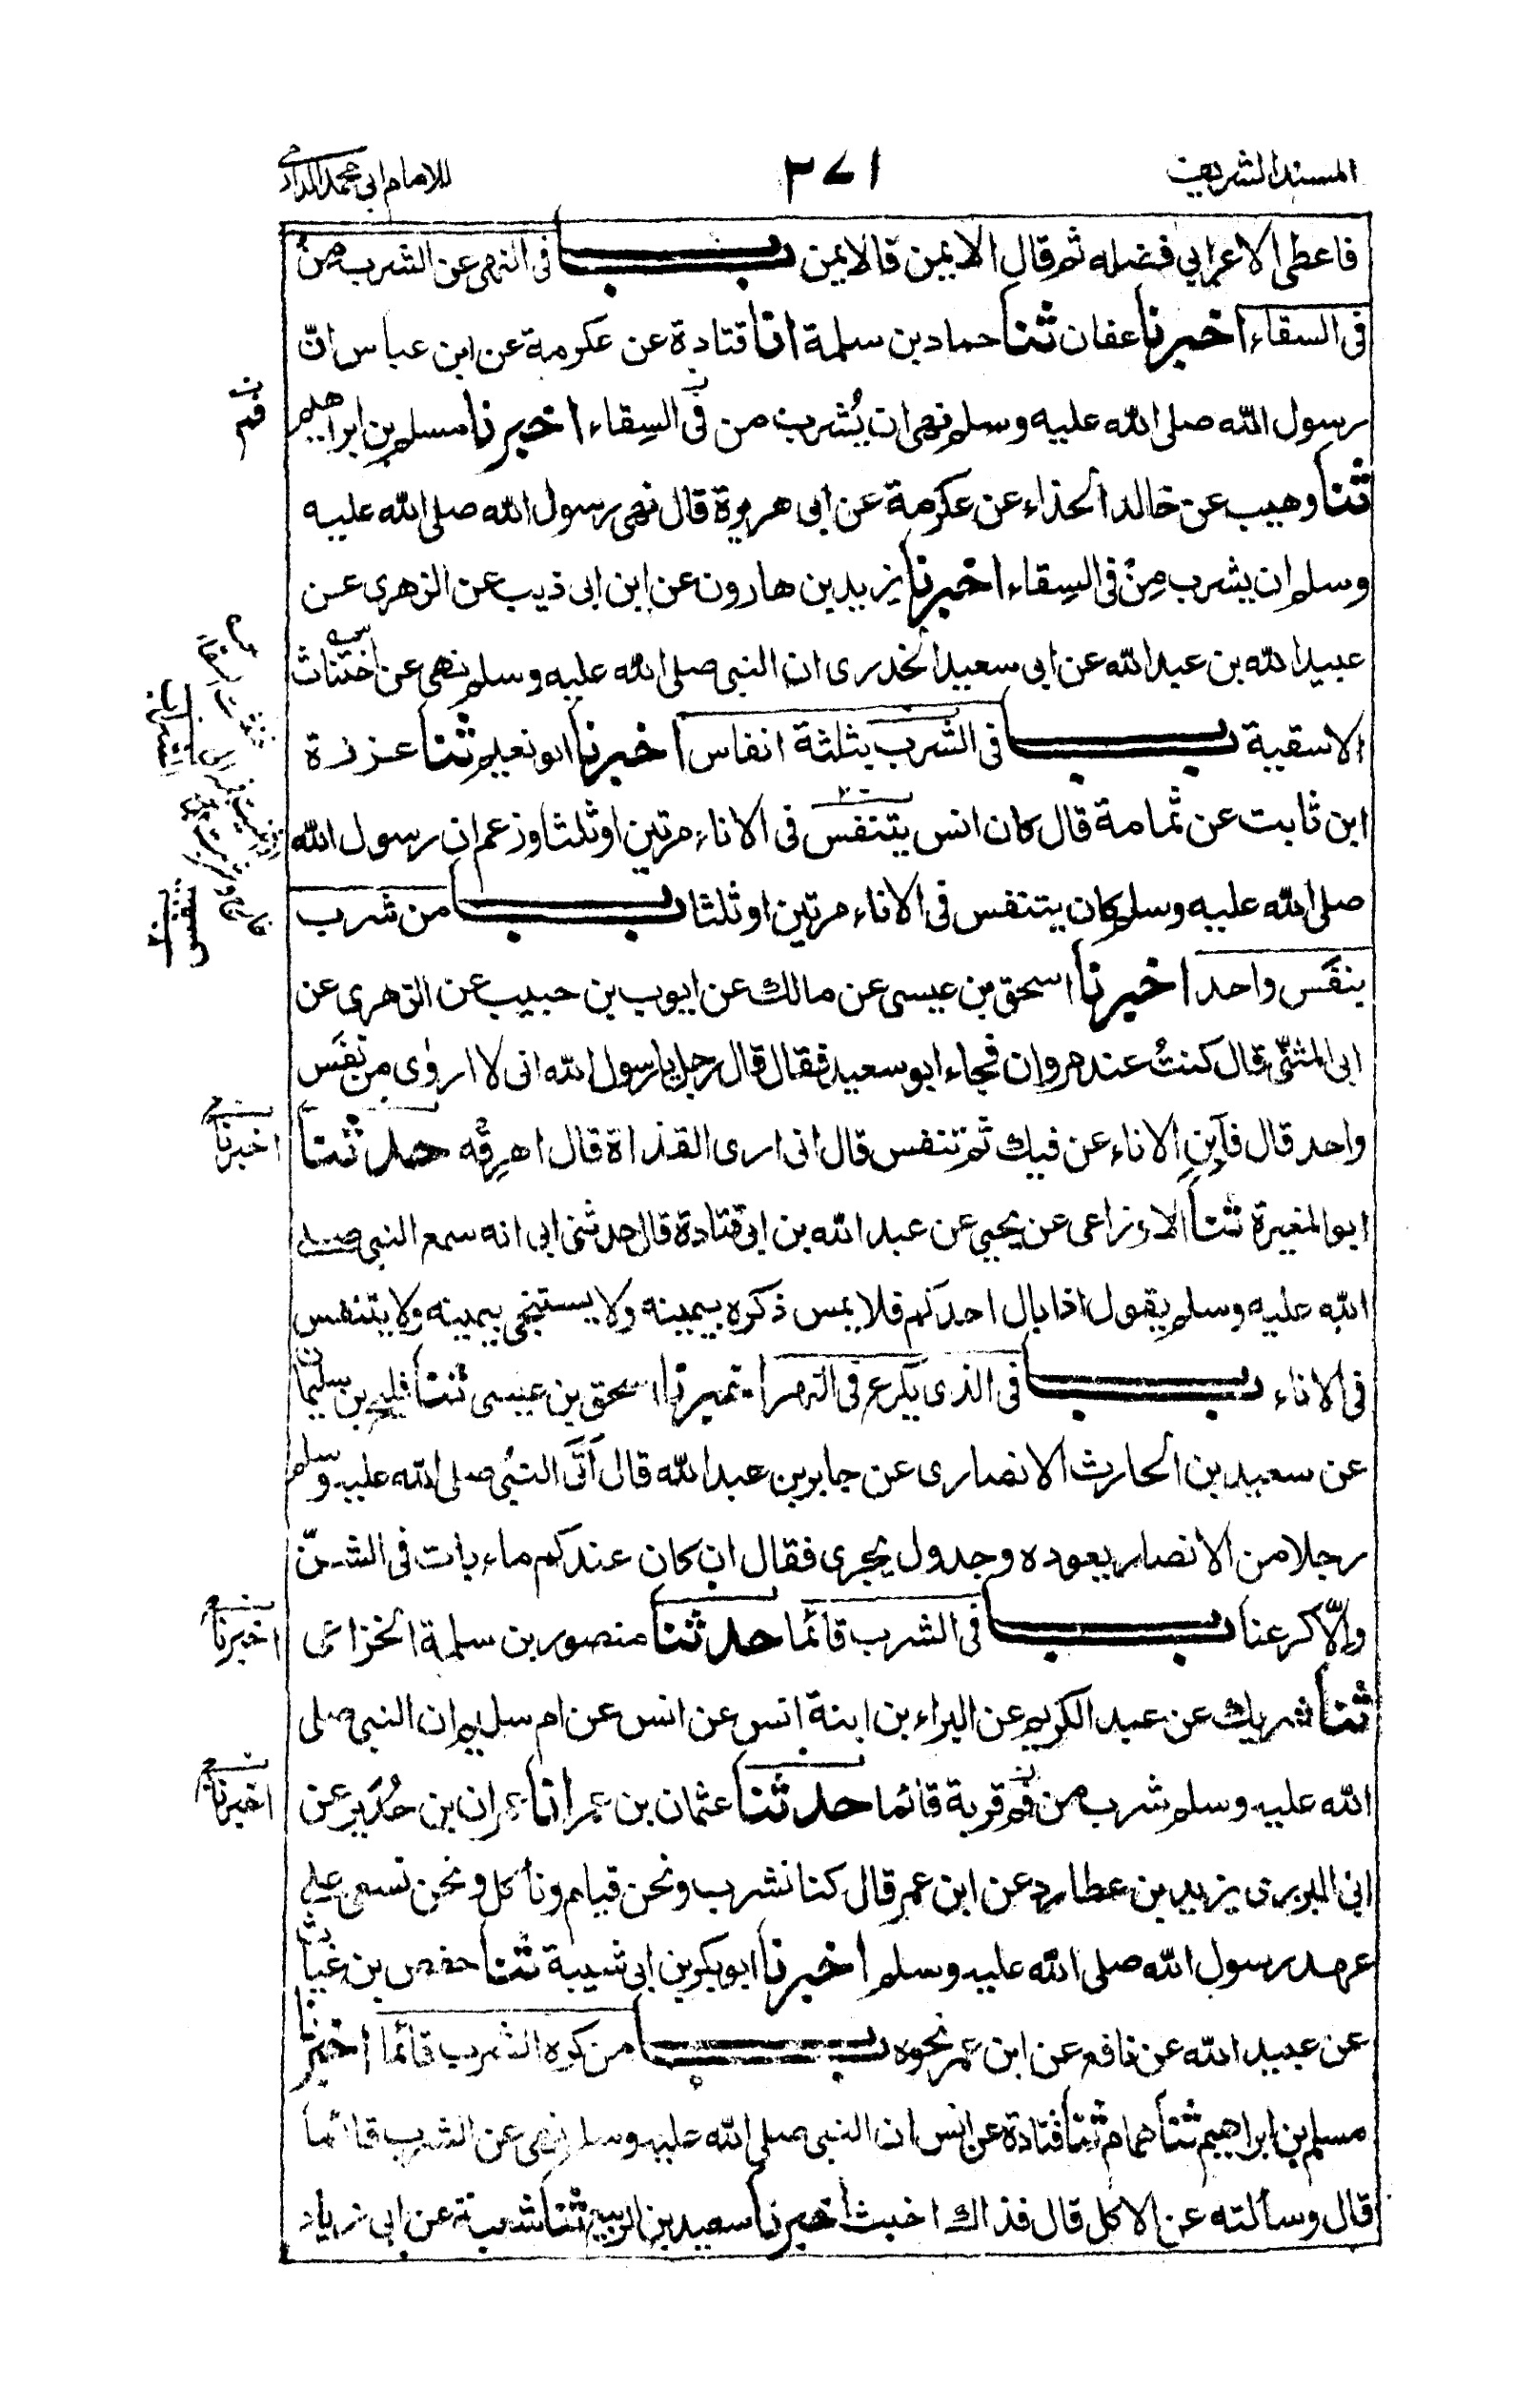 المسند الشريف
٣٧١
للامام ابي محمد الدارمي
فاعطى الاعرابي فضله ثم قال الايمن فالايمن باب في النهي عن الشرب من
في السقاء اخبرنا عفان ثنا حماد بن سلمة انا قتادة عن عكرمة عن ابن عباس انّ
رسول الله صلى الله عليه وسلم نهى ان يُشرب من في السِقاء اخبرنا مسلم بن ابراهيم
ثنا وهيب عن خالد الحذاء عن عكرمة عن ابى هريرة قال نهى رسول الله صلى الله عليه
وسلم ان يشرب مِنْ في السِقاء اخبرنا يزيد بن هارون عن ابن ابى ذيب عن الزهرى عن
عبيد الله بن عبد الله عن ابى سعيد الخدرى ان النبى صلى الله عليه وسلم نهى عن اختناث
الاسقية باب في الشرب بثلثة انفاس اخبرنا ابو نعيم ثنا عزرة
ابن ثابت عن ثمامة قال كان انس يتنفس في الاناء مرتين او ثلثا وزعم ان رسول الله
صلى الله عليه وسلم كان يتنفس في الاناء مرتين او ثلثا باب من شرب
بنفَس واحد اخبرنا اسحق بن عيسى عن مالك عن ايوب بن حبيب عن الزهرى عن
ابى المثنّى قال كنتُ عند مروان فجاء ابو سعيد فقال قال رجل يا رسول الله انى لا اروٰى من نفَس
واحد قال فاَبِنِ الاناء عن فيك ثم تنفس قال انى ارى القذاة قال اهرِقْه حدثنا
ابو المغيرة ثنا الاوزاعى عن يحيى عن عبد الله بن ابى قتادة قال حدثنى ابى انه سمع النبى صلى
الله عليه وسلم يقول اذا بال احدكم فلا يمس ذكره بيمينه ولا يستنجى بيمينه ولا يتنفس
في الاناء باب في الذى يكرع في النهر اخبرنا اسحق بن عيسى ثنا فليح بن سليمان
عن سعيد بن الحارث الانصارى عن جابر بن عبد الله قال اَتَى النبىُ صلى الله عليه وسلم
رجلا من الانصار يعوده وجدول يجرى فقال ان كان عندكم ماء بات في الشنّ
واِلاّ كرعنا باب في الشرب قائما حدثنا منصور بن سلمة الخزاعى
ثنا شريك عن عبد الكريم عن البراء بن ابنة انس عن انس عن ام سليم ان النبى صلى
الله عليه وسلم شرب من فم قربة قائما حدثنا عثمان بن عمر انا عمران بن حُدَير عن
ابى البزرى يزيد بن عطارد عن ابن عمر قال كنا نشرب ونحن قيام ونأكل ونحن نسعى على
عهد رسول الله صلى الله عليه وسلم اخبرنا ابو بكر بن ابى شيبة ثنا حفص بن غياث
عن عبيد الله عن نافع عن ابن عمر نحوه باب من كره الشرب قائما اخبرنا
مسلم بن ابراهيم ثنا همام ثنا قتادة عن انس ان النبى صلى الله عليه وسلم نهى عن الشرب قائما
قال وسألته عن الاكل قال فذاك اخبث اخبرنا سعيد بن الربيع ثنا شعبة عن ابى زياد
فم
اخبرنا
اخبرنا
اخبرنا